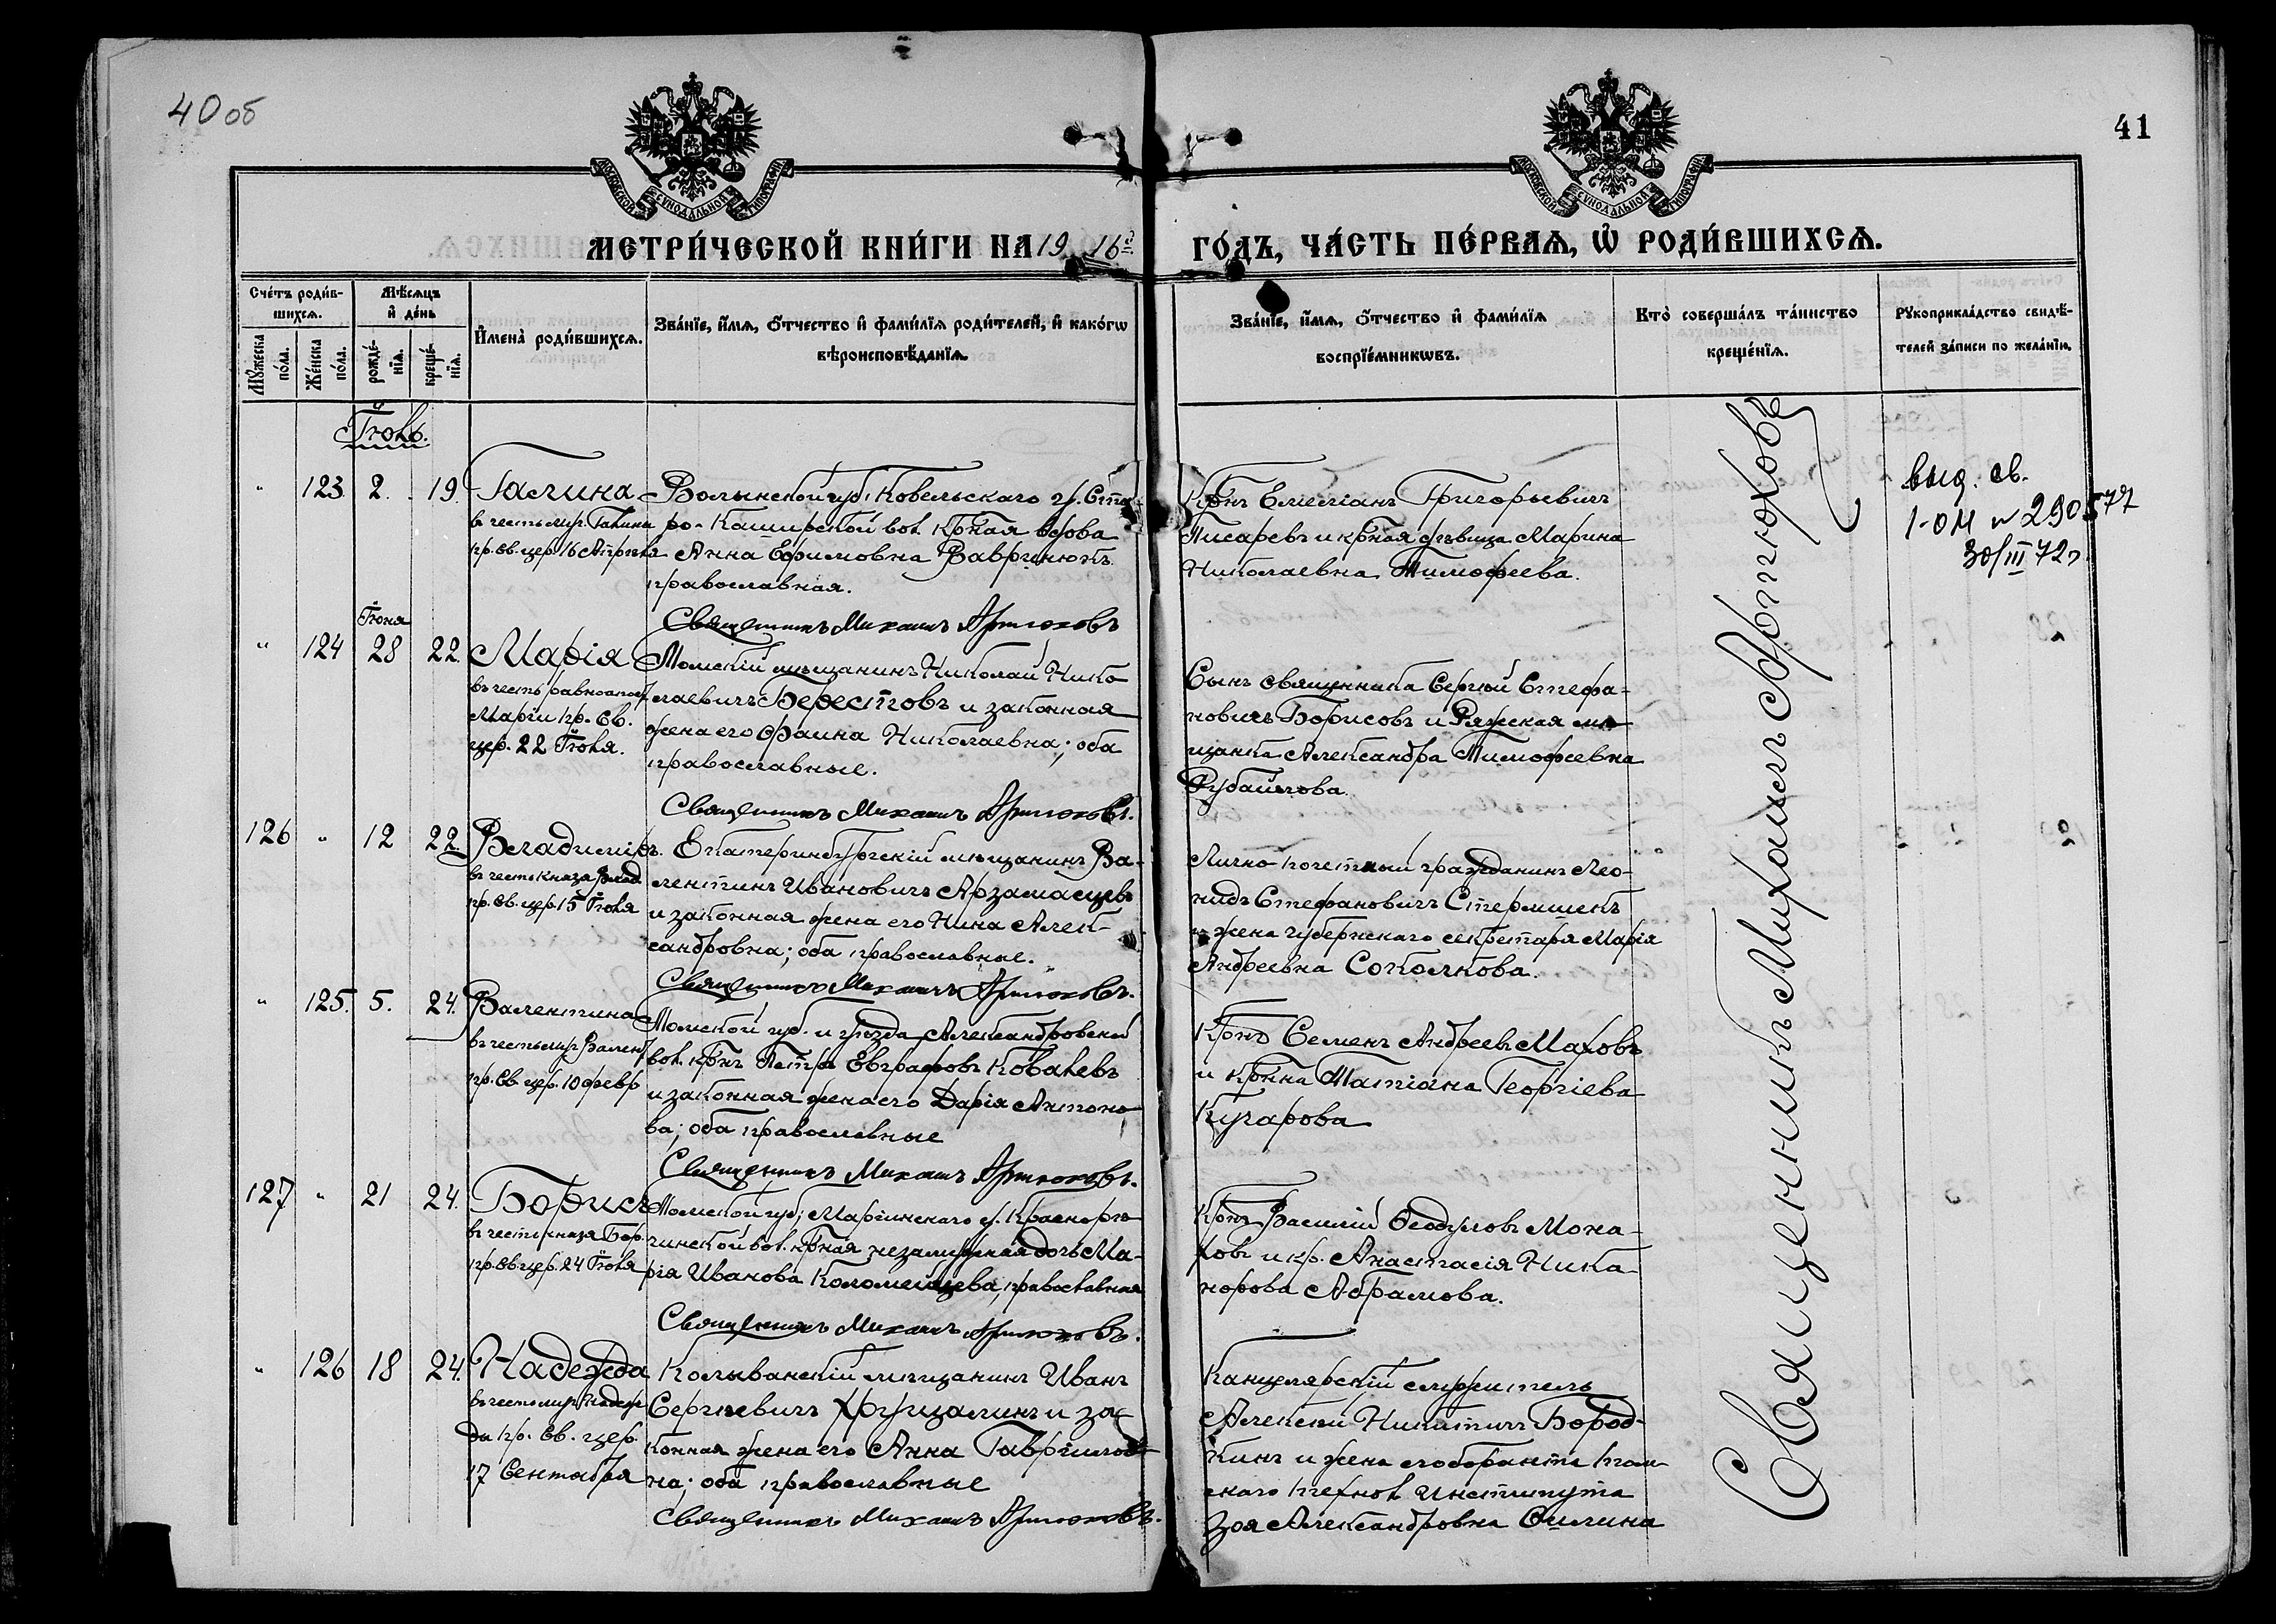 40 об
41
МОСКОВСКОЙ СУНОДАЛЬНОЙ ТИПОГРАФІИ
МОСКОВСКОЙ СУНОДАЛЬНОЙ ТИПОГРАФІИ
МЕТРИ́ЧЕСКОЙ КНИ́ГИ НА 1916й
ГО́ДЪ, ЧА́СТЬ ПЕ́РВАѦ, Ѡ҆ РОДИ́ВШИХСѦ.
Сче́тъ роди́в-
шихсѧ.
Мѣ́сѧцъ
и҆ де́нь
Мꙋ́жеска по́ла.
Же́нска по́ла.
рожде́-
нїѧ.
креще́-
нїѧ.
И҆мена̀ роди́вшихсѧ.
Зва́нїе, и҆́мѧ, ѻ҆́тчество и҆ фами́лїѧ роди́телей, и҆ како́гѡ
вѣроисповѣ́данїѧ.
Зва́нїе, и҆́мѧ, ѻ҆́тчество и҆ фами́лїѧ
воспрїе́мникѡвъ.
Кто̀ соверша́лъ та́инство
креще́нїѧ.
Рꙋкоприкла́дство свидѣ́-
телей за́писи по жела́нїю.
Іюль.
" 123. 2. 19. Галина
в честь мц. Галины
пр. св. цер. 16 Апрѣля
Волынской губ. Ковельскаго у. Ста-
ро-Каширской вол. кр͞ная вдова
Анна Ефимовна Вавринюкъ
православная.
Священникъ Михаилъ Артюховъ
Кр͞нъ Емеліанъ Григорьевичъ
Писаревъ и кр͞ная дѣвица Марина
Николаевна Тимофеева.
выд. св.
I-ОМ № 290577
30/III 72 г.
Іюня
" 124 28 22. Марія
въ честь равноапос.
Маріи пр. св.
цер. 22 Іюля.
Томскій мѣщанинъ Николай Нико
лаевичъ Берестовъ и законная
жена его Фаина Николаевна; оба
православные.
Священникъ Михаилъ Артюховъ.
Сынъ священника Сергій Стефа-
новичъ Борисовъ и Ряжская мѣ
щанка Александра Тимофеевна
Рубайлова.
126 " 12 22. Владиміръ.
въ честь князя Влад
пр. св. цер. 15 Іюля
Екатеринбургскій мѣщанинъ Ва-
лентинъ Ивановичъ Арзамасцевъ
и законная жена его Нина Алек-
сандровна; оба православные.
Священникъ Михаилъ Артюховъ.
Лично почетный гражданинъ Лео-
нидъ Стефановичъ
и жена губернскаго секретаря Марія
Андреевна Соколкова.
" 125. 5. 24. Валентина
въ честь мц. Валент
пр. св. цер. 10 февр
Томской губ. и уѣзда Александровской
вол. кр͞нъ Петръ Евграфовъ Ковалевъ
и законная жена его Дарія Антоно
ва; оба православные
Священникъ Михаилъ Артюховъ.
Кр͞нъ Семенъ Андреевъ Маховъ
и кр͞нка Татіана Георгіева
Кучарова
127 " 21 24. Борисъ
въ честь князя Бор.
пр. св. цер. 24 Іюля
Томской губ., Маріинскаго у. Краснорѣ
чинской вол. кр͞ная незамужная дочь Ма-
рія Иванова Коломейцева, православная
Священникъ Михаилъ Артюховъ.
Кр͞нъ Василій Феодуловъ Мона-
ховъ и кр. Анастасія Ника-
норова Абрамова.
" 126 18 24. Надежда
въ честь мц. Надеж
ды пр. св. цер.
17 Сентября
Колыванскій мѣщанинъ Иванъ
Сергѣевичъ и за-
конная жена его Анна Гавріилов
на; оба православные
Священникъ Михаилъ Артюховъ.
Канцелярскій служитель
Алексѣй Никитичъ Бород-
кинъ и жена лаборанта Том
скаго Технол. Института
Зоя Александровна Силина
Священникъ Михаилъ Артюховъ